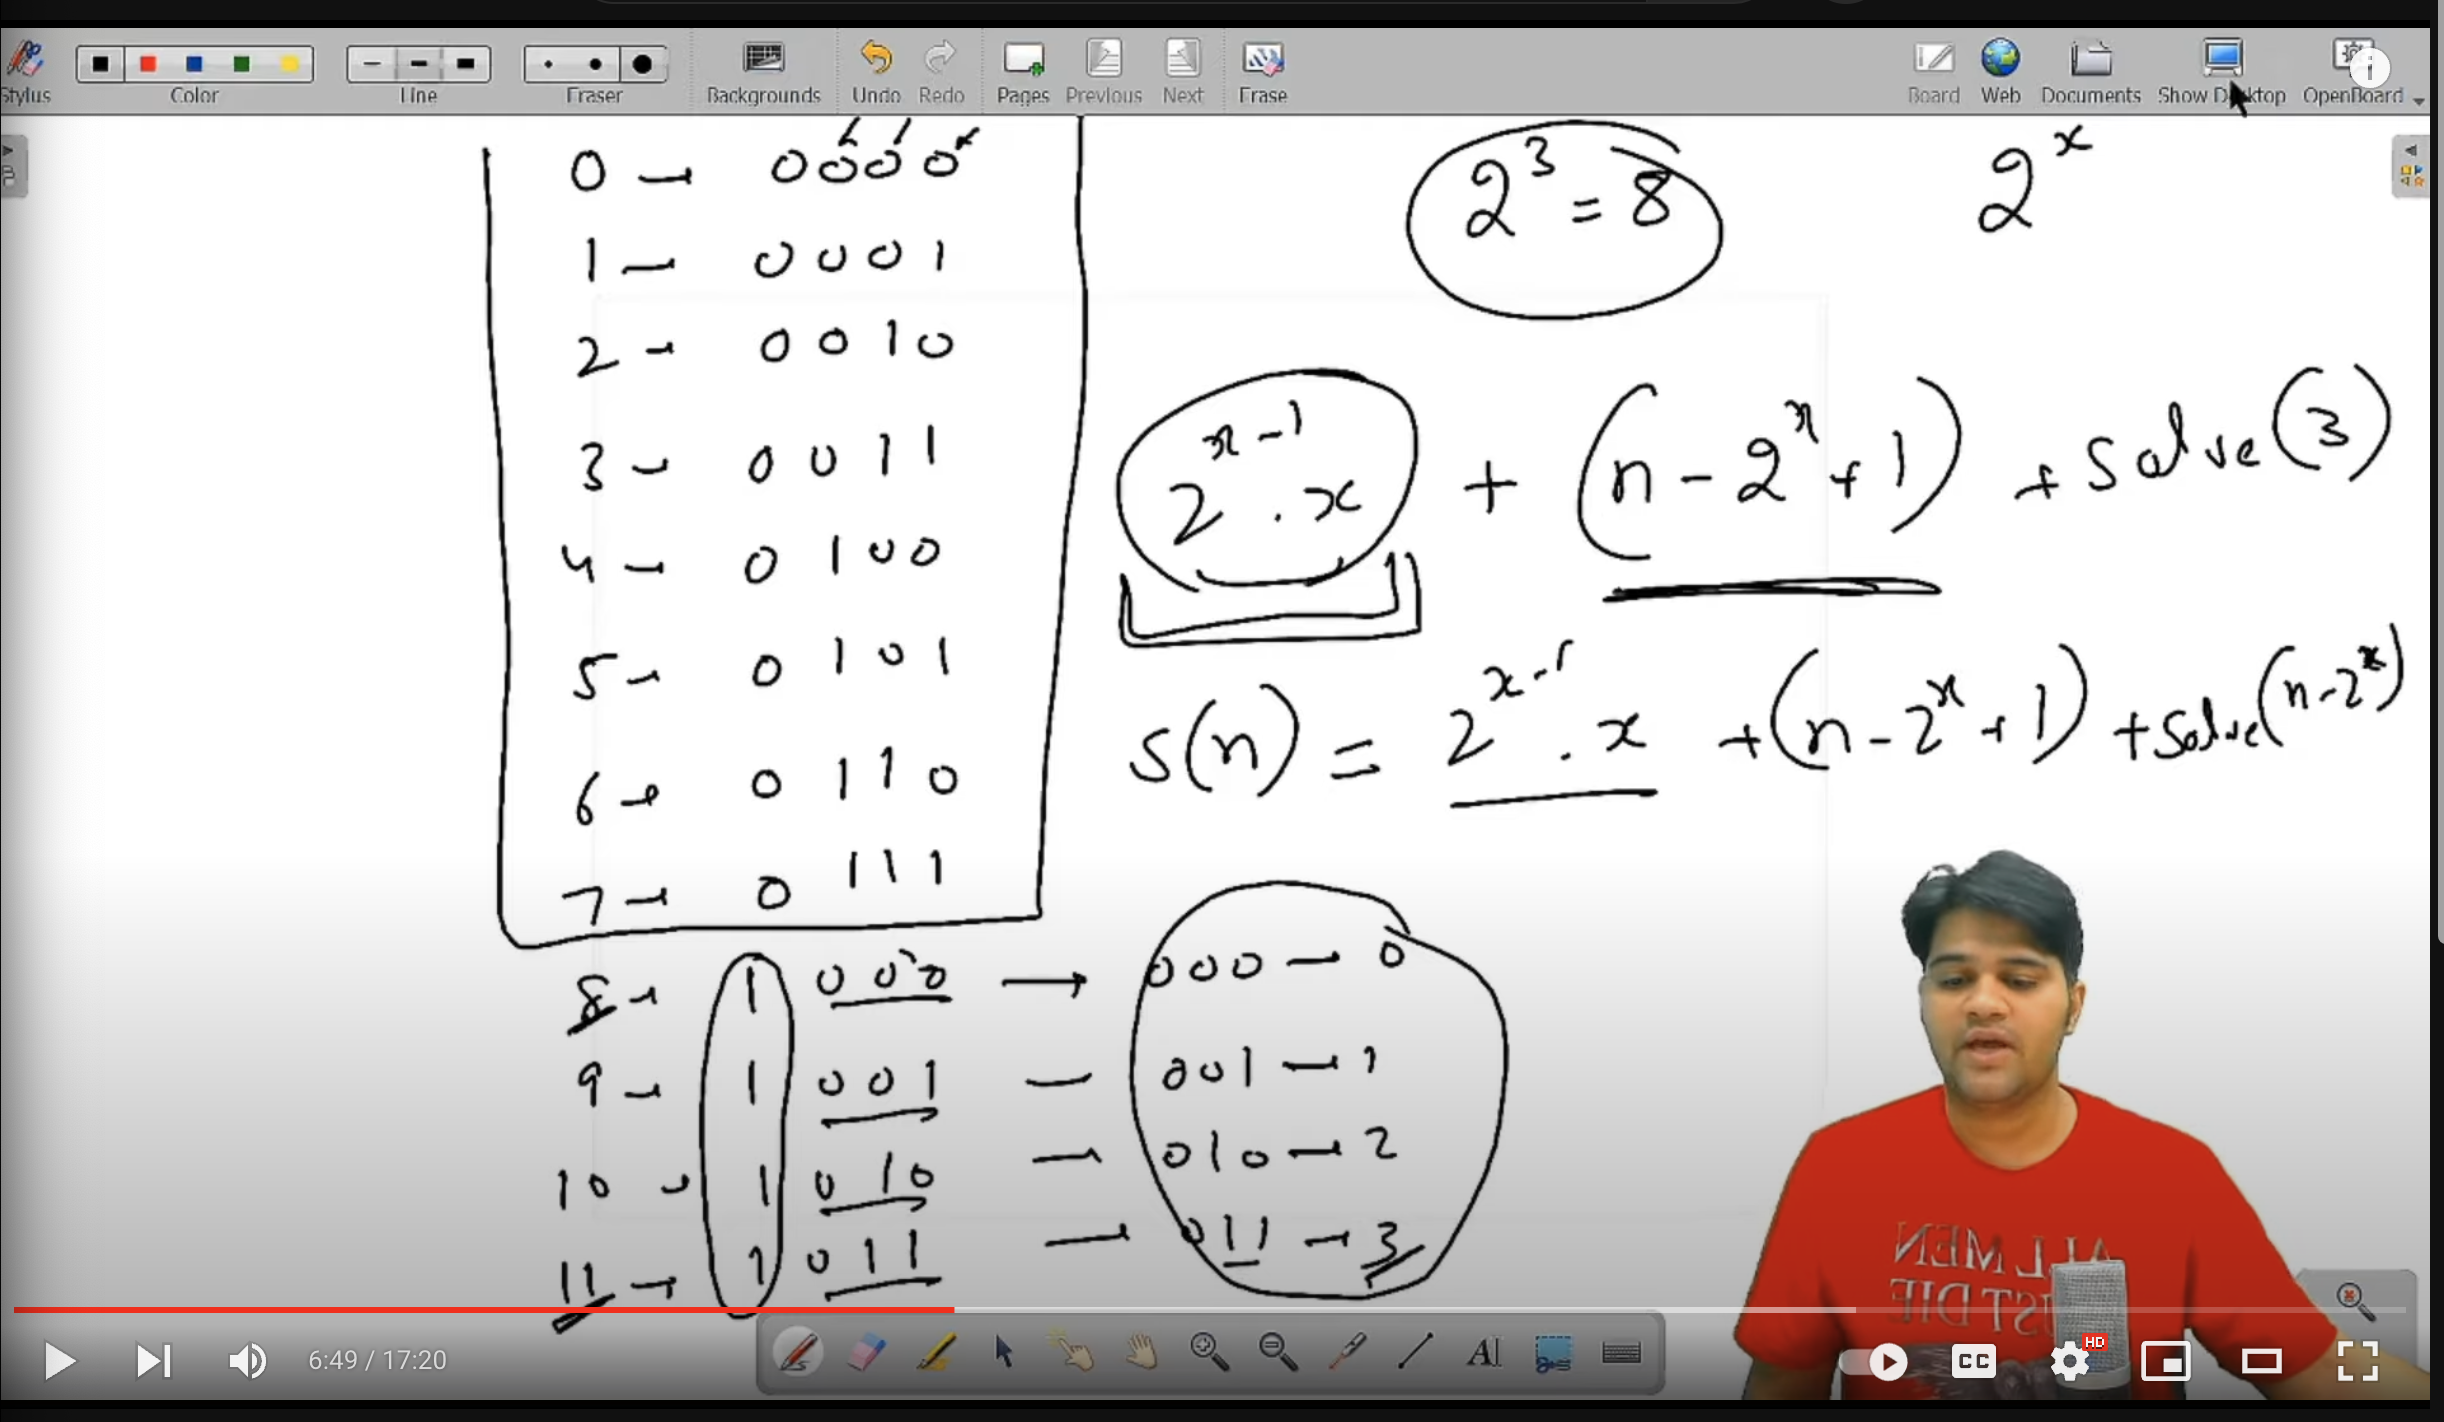 Stylus Color Line Eraser Backgrounds Undo Redo Pages Previous Next Erase Board Web Documents Show Desktop OpenBoard
0 – 0000
1 – 0001
2 – 0010
3 – 0011
4 – 0100
5 – 0101
6 – 0110
7 – 0111
8 – 1 000 → 000 – 0
9 – 1 001 – 001 – 1
10 – 1 010 – 010 – 2
11 – 1 011 – 011 – 3
2³ = 8
2ˣ
2ˣ⁻¹ . x + (n – 2ˣ + 1) + Solve(3)
S(n) = 2ˣ⁻¹ . x + (n – 2ˣ + 1) + Solve(n – 2ˣ)
ALL MEN
ST DIE
6:49 / 17:20
CC
HD
AI